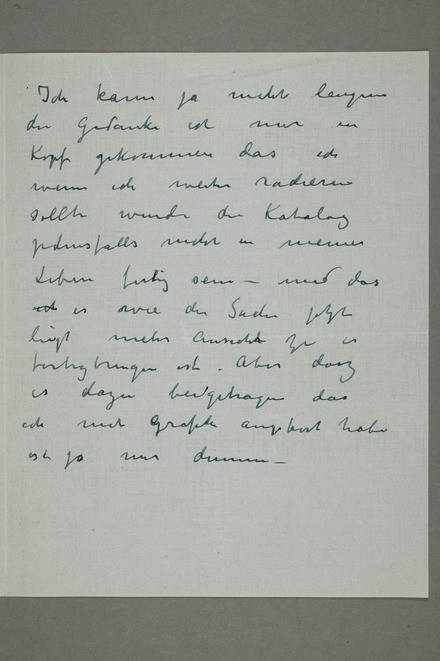 Ich kann ja nicht leugnen
der Gedanke ist mir im
Kopf gekommen das ich
wenn ich weiter radieren
sollte wurde der Katalog
jedensfalls nicht in meinem
Leben fertig sein – und das
es wie die Sache jetzt
liegt mehr Aussicht ist es
fertigbringen ist. Aber das
es dazu beigetragen das
ich mit Grafik aufhört habe
ist ja nur dumm –